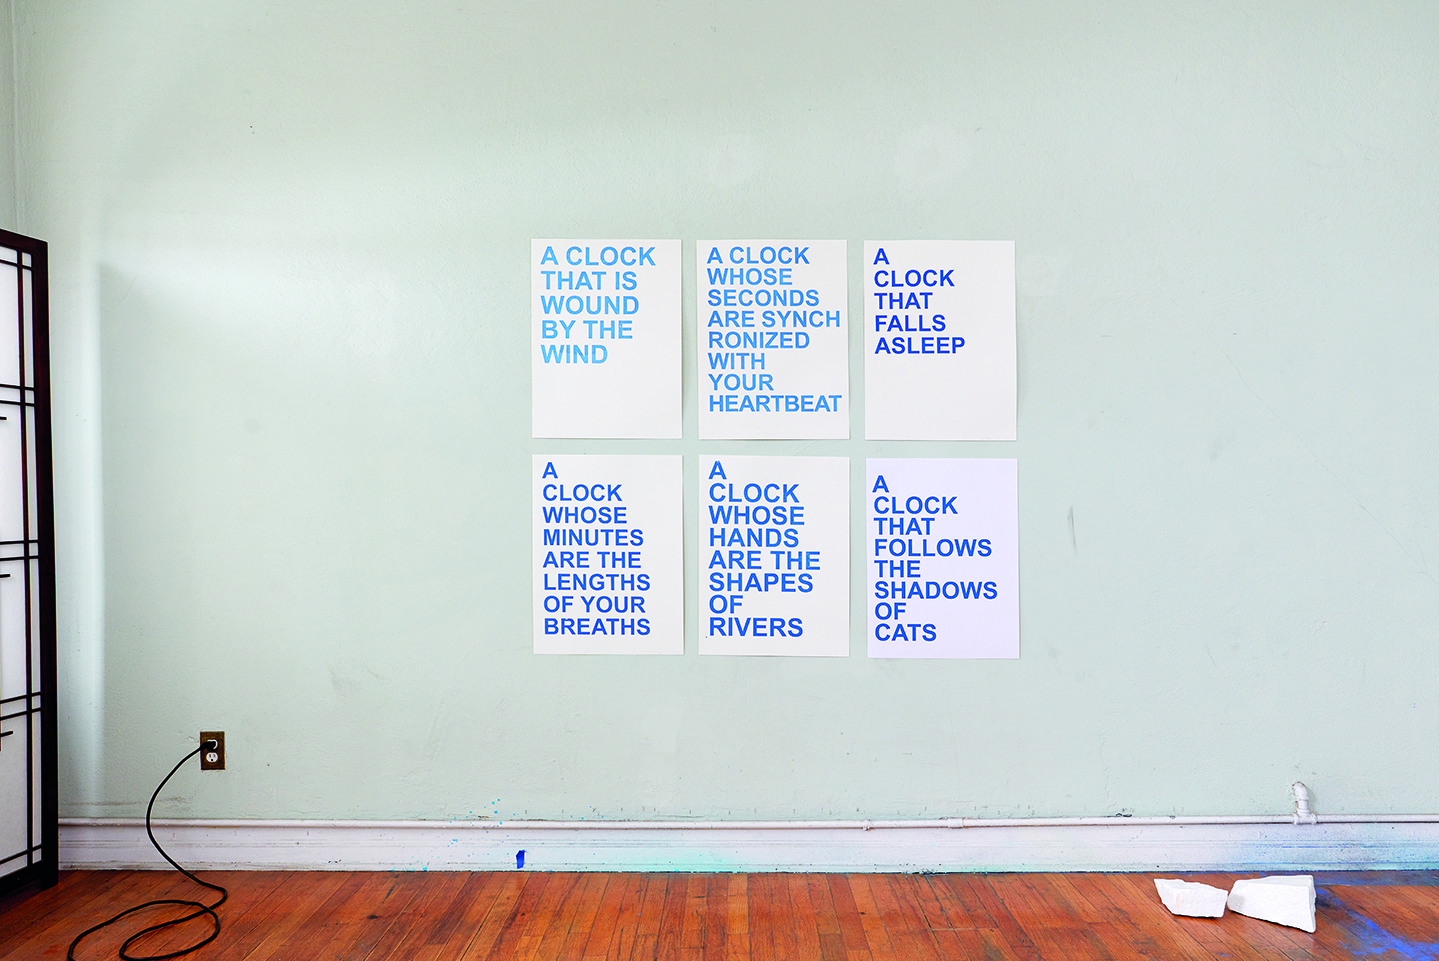 A CLOCK
THAT IS
WOUND
BY THE
WIND
A CLOCK
WHOSE
SECONDS
ARE SYNCH
RONIZED
WITH
YOUR
HEARTBEAT
A
CLOCK
THAT
FALLS
ASLEEP
A
CLOCK
WHOSE
MINUTES
ARE THE
LENGTHS
OF YOUR
BREATHS
A
CLOCK
WHOSE
HANDS
ARE THE
SHAPES
OF
RIVERS
A
CLOCK
THAT
FOLLOWS
THE
SHADOWS
OF
CATS